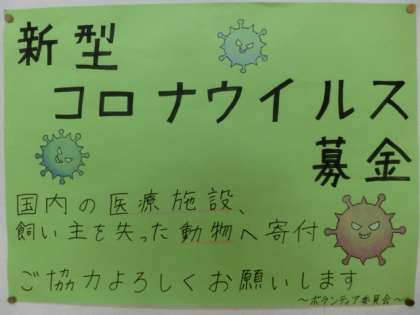 新型
コロナウイルス
募金
国内の医療施設、
飼い主を失った動物へ寄付
ご協力よろしくお願いします
〜ボランティア委員会〜